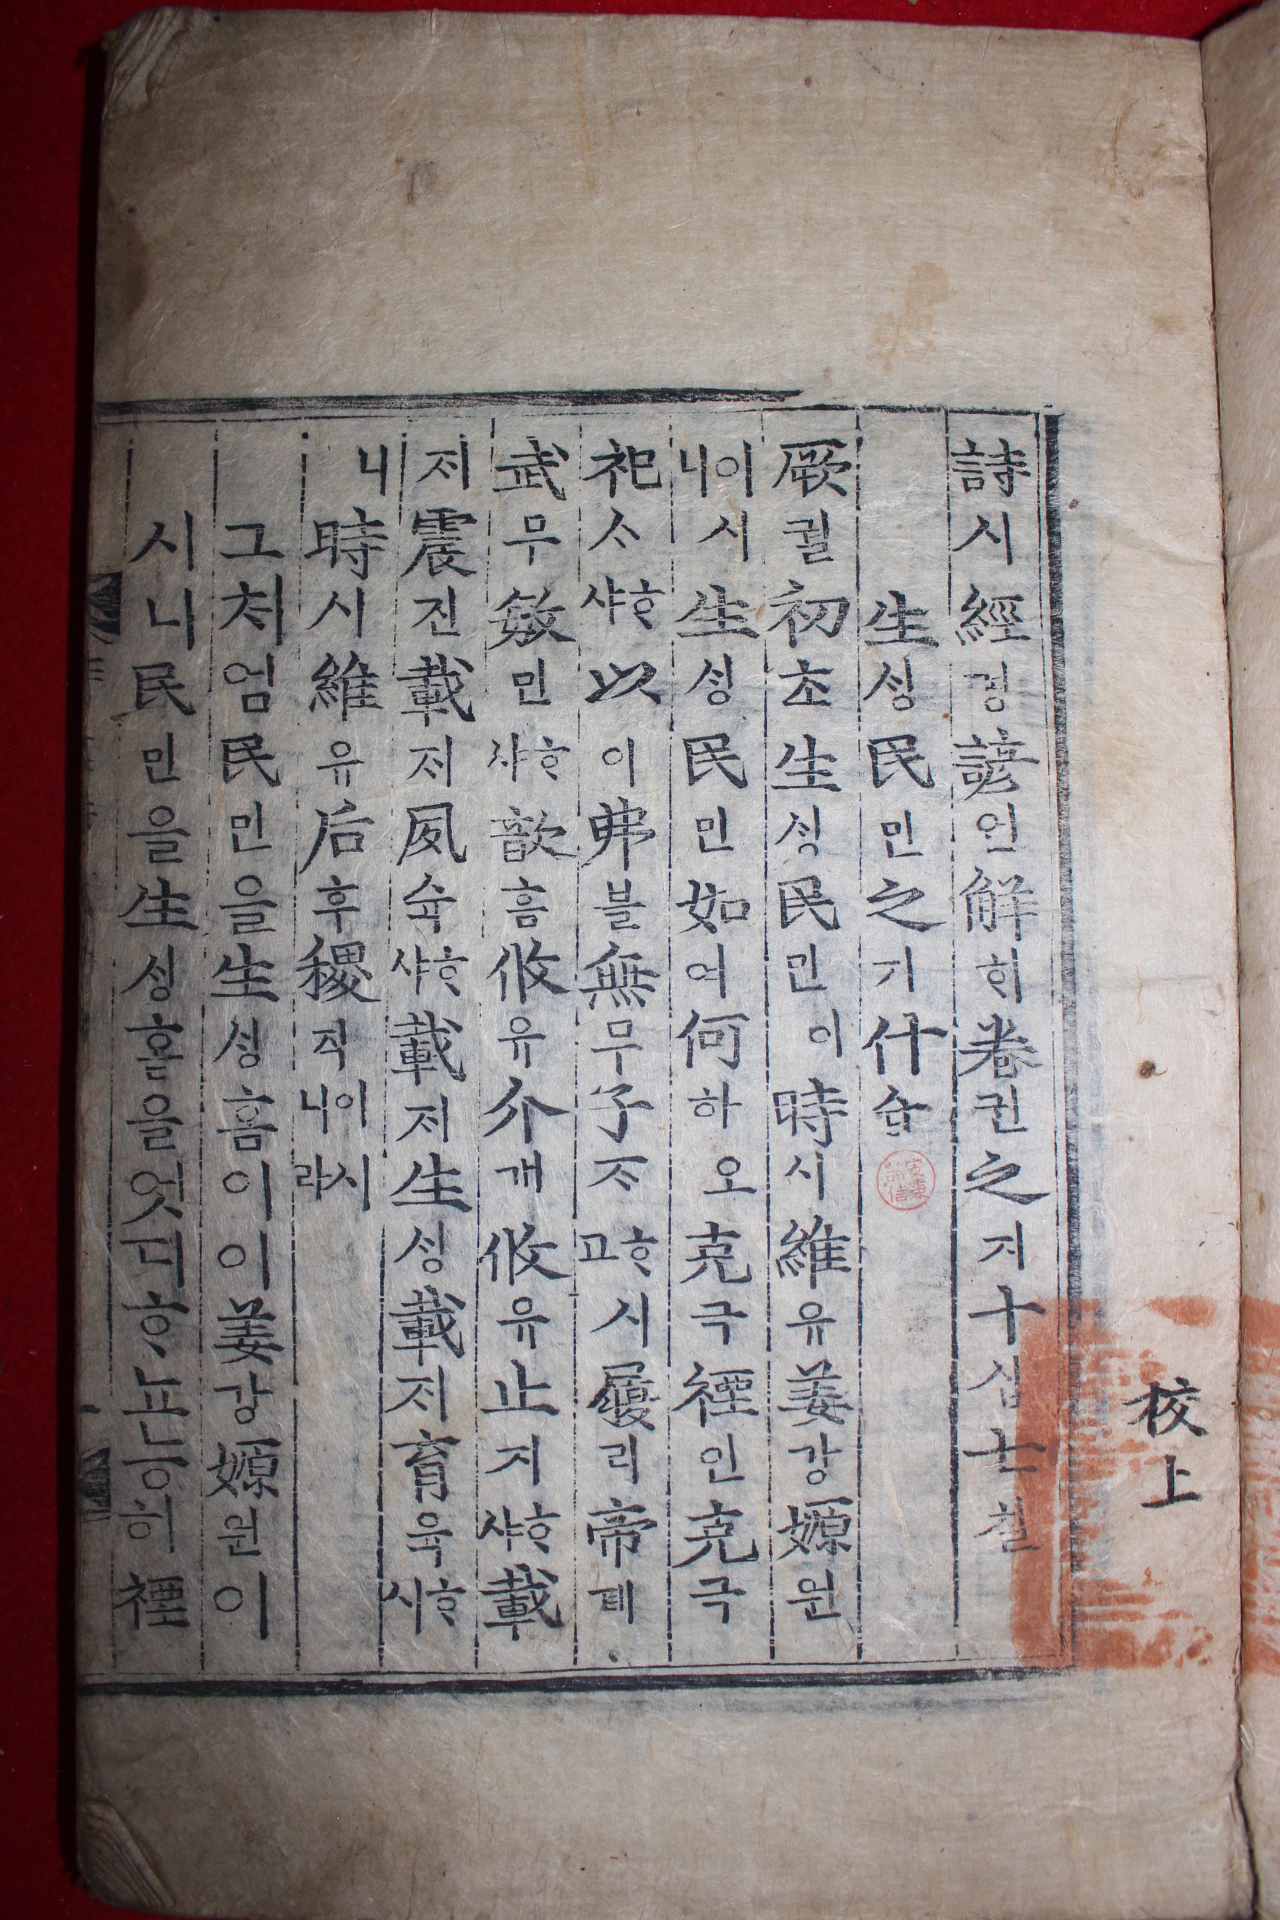 校上
詩시經경諺언解ᄒᆡ卷권之지十십七칠
生ᄉᆡᆼ民민之지什십
厥궐初초生ᄉᆡᆼ民민이時시維유姜강嫄원
이시니生ᄉᆡᆼ民민如여何하오克극禋인克극
祀ᄉᆞᄒᆞ샤以이弗블無무子ᄌᆞᄒᆞ고시履리帝뎨
武무敏민ᄒᆞ샤歆흠攸유介개攸유止지ᄒᆞ샤載
ᄌᆡ震진載ᄌᆡ夙슉ᄒᆞ샤載ᄌᆡ生ᄉᆡᆼ載ᄌᆡ育육ᄒᆞ시
니時시維유后후稷직이시니라
그처엄民민을生ᄉᆡᆼ홈이이姜강嫄원이
시니民민을生ᄉᆡᆼ홈을엇디ᄒᆞ뇨능히禋